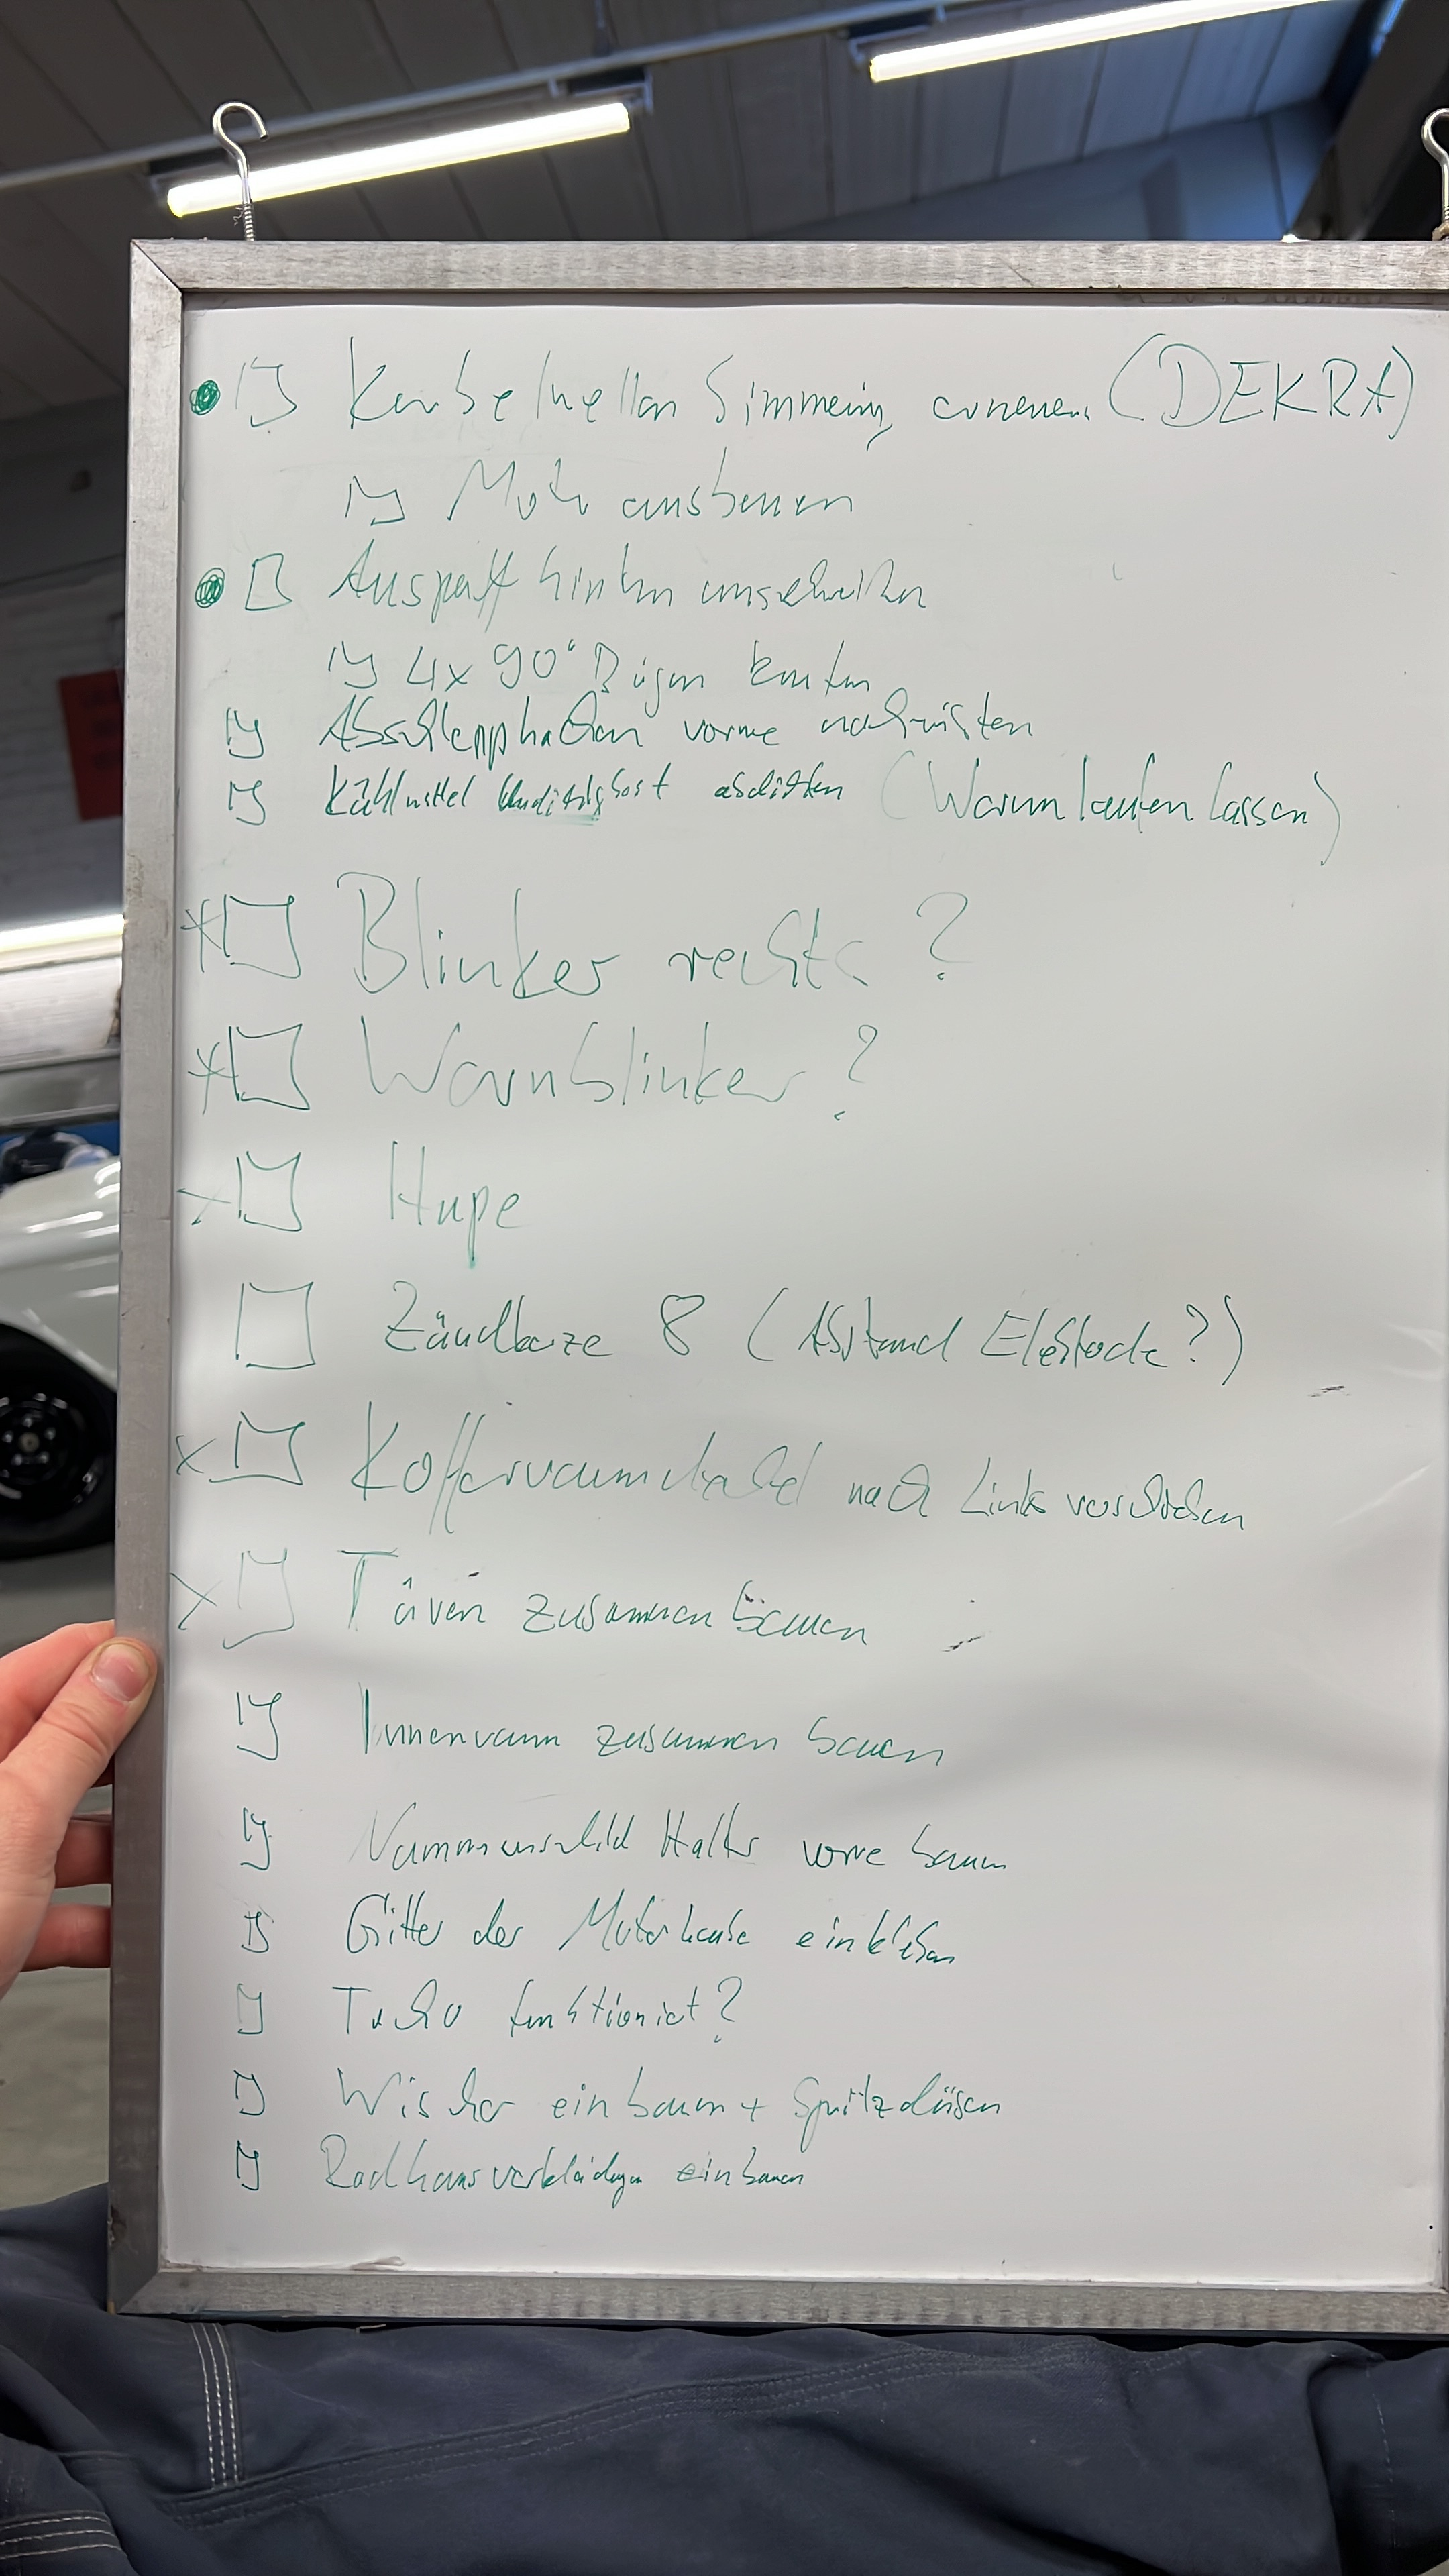 Kurbelwellen Simmering erneuern (DEKRA)
Motor ausbauen
Auspuff hinten umschweißen
4x 90° Bögen kaufen
Abschlepphaken vorne nachrüsten
Kühlmittel abdichten (Warm laufen lassen)
Blinker rechts?
Warnblinker?
Hupe
Zündkerze 8 (Abstand Elektrode?)
Kofferraumdeckel nach Links verschieben
Türen zusammen bauen
Innenraum zusammen bauen
Nummernschild Halter vorne bauen
Gitter der Motorhaube einkleben
Tacho funktioniert?
Wischer einbauen + Spritzdüsen
Radhausverkleidungen einbauen